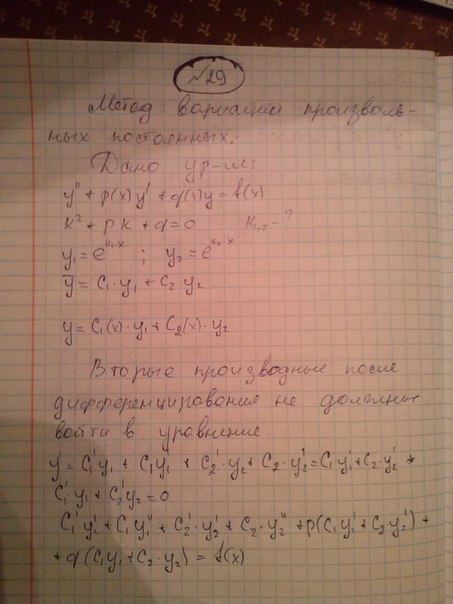 №29
Метод вариации произволь-
ных постоянных.
Дано ур-ие:
y'' + p(x)y' + q(x)y = f(x)
k² + pk + q = 0 k₁,₂ - ?
y₁ = e^(k₁·x) ; y₂ = e^(k₂·x)
ȳ = C₁·y₁ + C₂·y₂
y = C₁(x)·y₁ + C₂(x)·y₂
Вторые производные после
дифференцирования не должны
войти в уравнение.
y' = C₁'y₁ + C₁y₁' + C₂'·y₂ + C₂·y₂' = C₁·y₁' + C₂·y₂'
C₁'y₁ + C₂'y₂ = 0
C₁'y₁' + C₁y₁'' + C₂'·y₂' + C₂·y₂'' + p(C₁y₁' + C₂·y₂') +
+ q(C₁y₁ + C₂·y₂) = f(x)